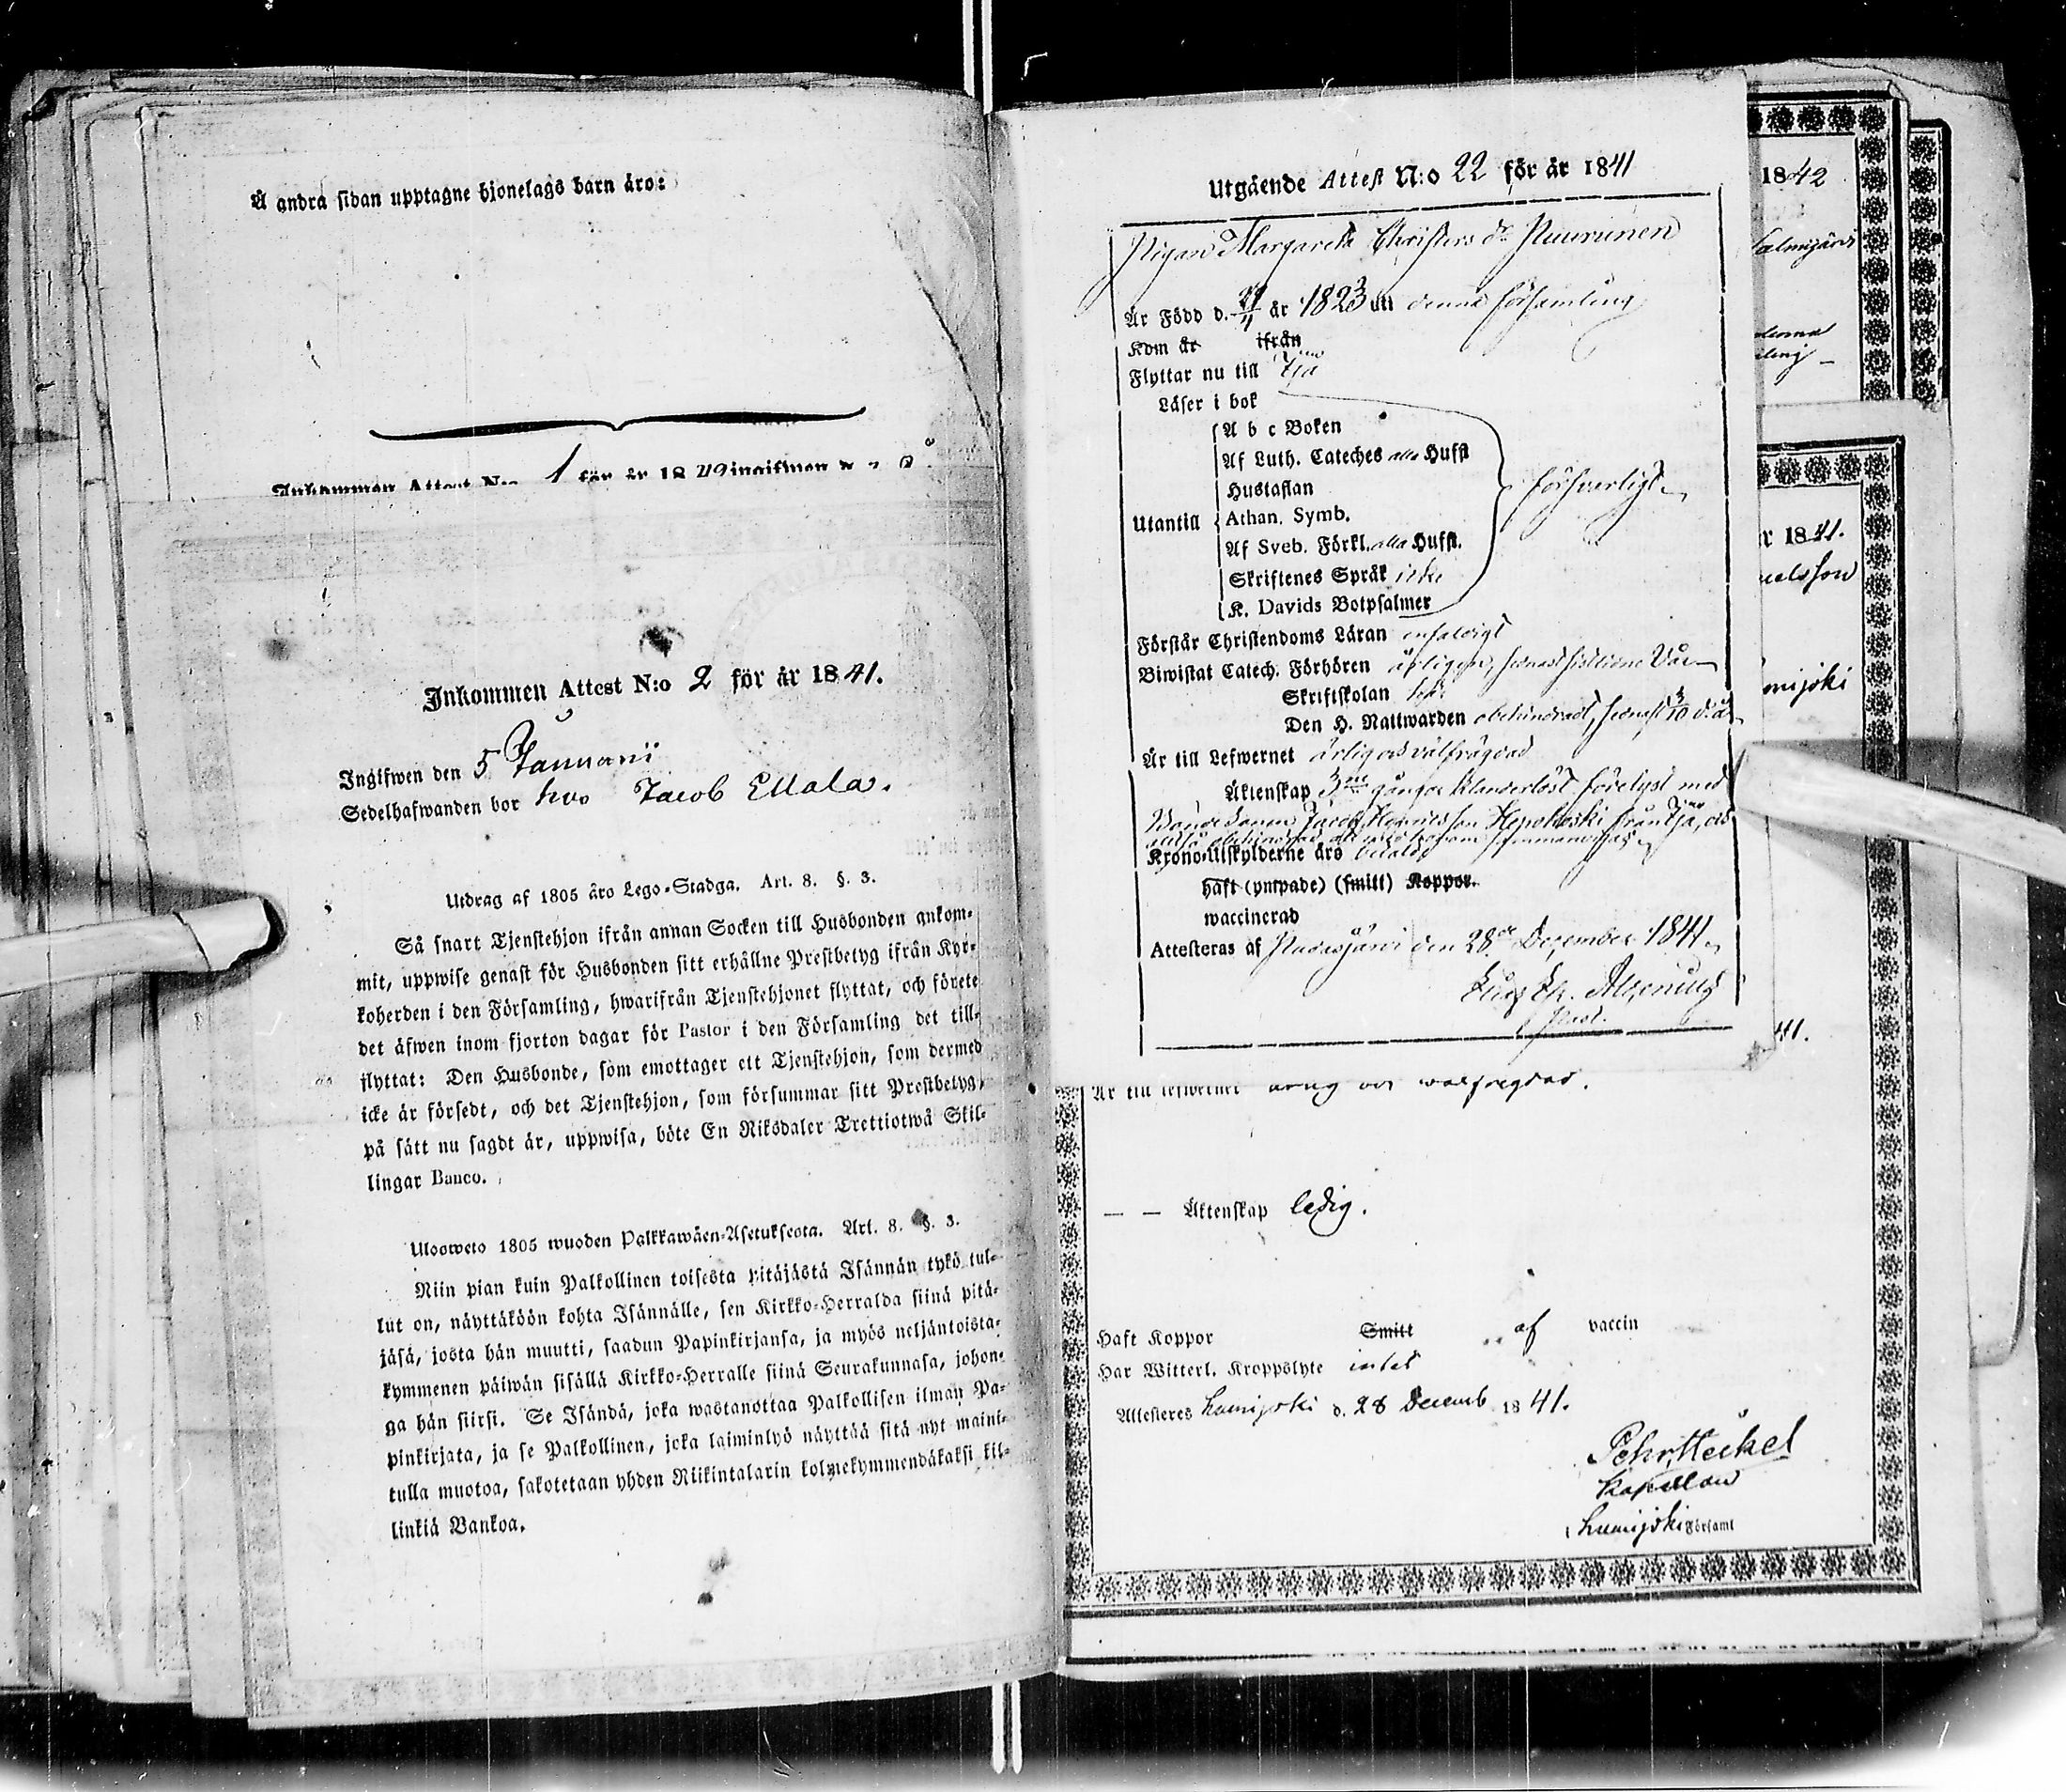 Å andra sidan upptagne hjonelags barn äro:
Inkommen Attest N:o 1 för år 18
Inkommen Attest N:o 2 för år 1841.
Ingifwen den 5 Januarii
Sedelhafwanden bor hos Jacob Ellala.
Utdrag af 1805 års Lego-Stadga. Art. 8. §. 3.
Så snart Tjenstehjon ifrån annan Socken till Husbonden ankom-
mit, uppwise genast för Husbonden sitt erhållne Prestbetyg ifrån Kyr-
koherden i den Församling, hwarifrån Tjenstehjonet flyttat, och förete
det äfwen inom fjorton dagar för Pastor i den Församling det till-
flyttat: Den Husbonde, som emottager ett Tjenstehjon, som dermed
icke är försedt, och det Tjenstehjon, som försummar sitt Prestbetyg,
på sätt nu sagdt är, uppwisa, böte En Riksdaler Trettiotwå Skil-
lingar Banco.
Ulosweto 1805 wuoden Palkkawäen-Asetuksesta. Art. 8. §. 3.
Niin pian kuin Palkollinen toisesta pitäjästä Isännän tykö tul-
lut on, näyttäköön kohta Isännälle, sen Kirkko-Herralda siinä pitä-
jäsä, josta hän muutti, saadun Papinkirjansa, ja myös neljäntoista-
kymmenen päiwän sisällä Kirkko-Herralle siinä Seurakunnasa, johon-
ga hän siirsi. Se Isändä, joka wastanottaa Palkollisen ilman Pa-
pinkirjata, ja se Palkollinen, joka laiminlyö näyttää sitä nyt maini-
tulla muotoa, sakotetaan yhden Riikintalarin kolmekymmendäkaksi kil-
linkiä Bankoa.
Utgående Attest N:o 22 för år 1841
Pigan Margareta Christers dr Ruurunen
Är Född d. år 1823 uti denna församling
Kom år ifrån
Flyttar nu till Ijå
Läser i bok
A b c Boken
Af Luth. Cateches alla Hufst
Hustaflan
Utantill Athan. Symb. försvarligt
Af Sveb. Förkl. alla Hufst.
Skriftenes Språk icke
K. Davids Botpsalmer
Förstår Christendoms Läran enfaldigt
Biwistat Catech. Förhören årligen, senast sistlidne Vår
Skriftskolan
Den H. Nattwarden obehindrad, senast 3/10 d. år
Är till Lefwernet ärlig och välfrägdad
Äktenskap 3ne gånger klanderlöst förelyst med
Bonde Sonen Jacob Henricsson från Ijå, och
Krono-Utskylderne äro betalde
haft (ympade) (smitt) Koppor.
waccinerad
Attesteras af Pudasjärvi den 28de December 1841
Past.
Är till lefwernet ärlig och wälfrägdad.
— — Äktenskap ledig.
Haft Koppor Smitt af vaccin
Har Witterl. Kroppslyte intet
Attesteres Lumijoki d. 28 Decemb 1841.
Pehr Heikel
Kapellan
Lumijoki Församl
1842
r 1841.
uelsson
mijoki
41.